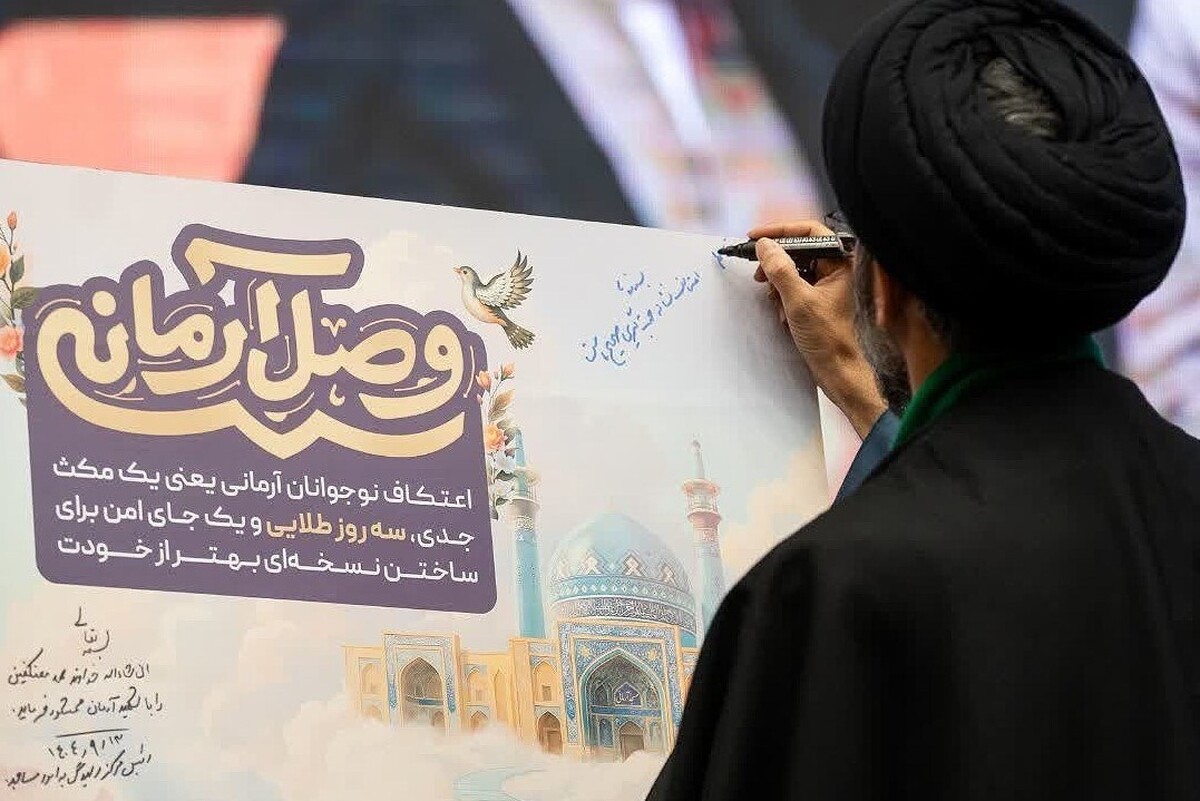 وصل آرمانه
اعتکاف نوجوانان آرمانی یعنی یک مکث
جدی، سه روز طلایی و یک جای امن برای
ساختن نسخه‌ای بهتر از خودت
بسمه تعالی
ان شاءالله خداوند همه معتکفین
را با شهید آرمان محشور فرماید.
۱۴۰۴/۹/۱۳
رئیس مرکز رسیدگی به امور مساجد